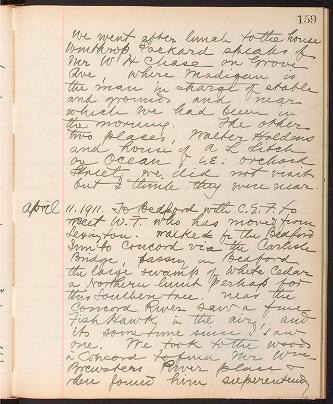 159
we went after lunch to the house
Winthrop Packard speaks of
Mr W H Chase on Grove
Ave, where Madigan is
the man in charge of stable
and grounds and near
which we had been in
the morning. The other
two places, Walter Holdens
and house of A L Fitch
on Ocean & S.E. orchard
Streets, we did not visit
but I think they were near.
April 11. 1911. To Bedford with C.E.F. to
meet W.F. who has moved from
Lexington. walked fr the Bedford
Inn to Concord via the Carlisle
Bridge, passing in Bedford
the large swamp of White Cedar
a Northern limit perhaps for
this Southern tree, near the
Concord River saw a fine
Fish Hawk in the air, and
its some time since I saw
one. We took to the woods
in Concord to find Mr Wm
Brewsters River place &
then found him superintend